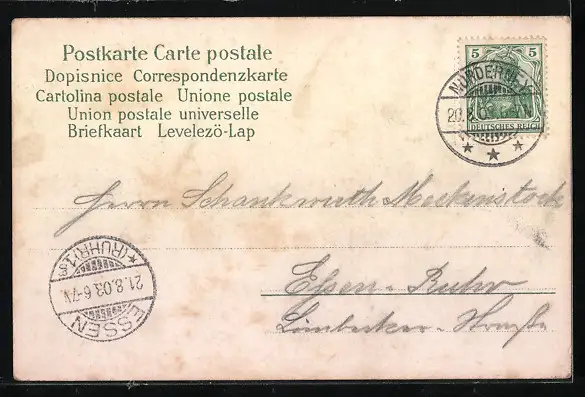 Postkarte Carte postale
Dopisnice Correspondenzkarte
Cartolina postale Unione postale
Union postale universelle
Briefkaart Levelezö-Lap
5 5
DEUTSCHES REICH
NORDERNEY
20.8.03
Herrn Schankwirth Meckenstock
Essen-Ruhr
Limbecker-Straße
ESSEN
21.8.03.6-7N
*(RUHR)1